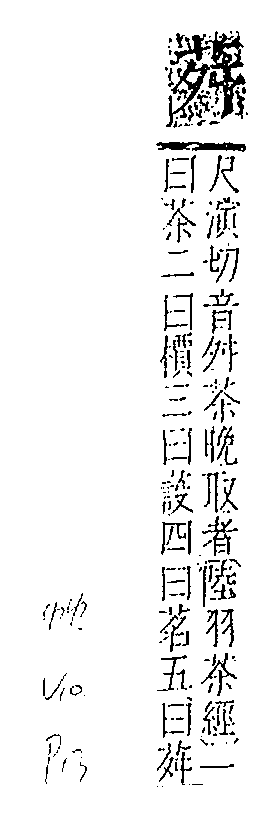 荈
尺演切音舛茶晚取者(陸羽茶經)一
曰茶二曰價三曰蔎四曰茗五曰荈
艸
V10
P13